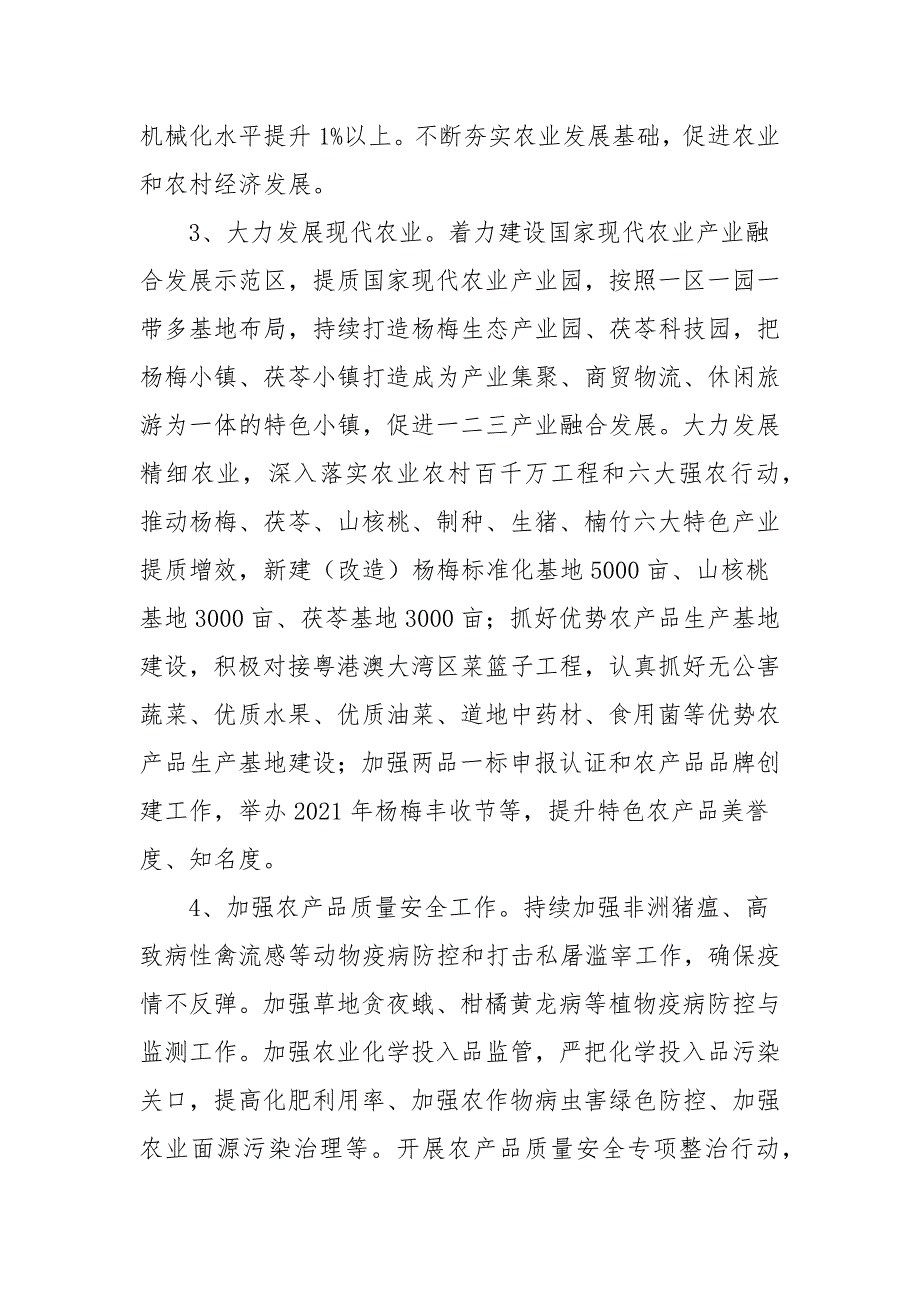 机械化水平提升 1%以上。不断夯实农业发展基础，促进农业
和农村经济发展。
3、大力发展现代农业。着力建设国家现代农业产业融
合发展示范区，提质国家现代农业产业园，按照一区一园一
带多基地布局，持续打造杨梅生态产业园、茯苓科技园，把
杨梅小镇、茯苓小镇打造成为产业集聚、商贸物流、休闲旅
游为一体的特色小镇，促进一二三产业融合发展。大力发展
精细农业，深入落实农业农村百千万工程和六大强农行动，
推动杨梅、茯苓、山核桃、制种、生猪、楠竹六大特色产业
提质增效，新建（改造）杨梅标准化基地 5000 亩、山核桃
基地 3000 亩、茯苓基地 3000 亩；抓好优势农产品生产基地
建设，积极对接粤港澳大湾区菜篮子工程，认真抓好无公害
蔬菜、优质水果、优质油菜、道地中药材、食用菌等优势农
产品生产基地建设；加强两品一标申报认证和农产品品牌创
建工作，举办 2021 年杨梅丰收节等，提升特色农产品美誉
度、知名度。
4、加强农产品质量安全工作。持续加强非洲猪瘟、高
致病性禽流感等动物疫病防控和打击私屠滥宰工作，确保疫
情不反弹。加强草地贪夜蛾、柑橘黄龙病等植物疫病防控与
监测工作。加强农业化学投入品监管，严把化学投入品污染
关口，提高化肥利用率、加强农作物病虫害绿色防控、加强
农业面源污染治理等。开展农产品质量安全专项整治行动，